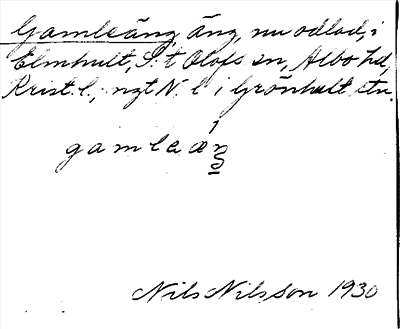 Gamleäng, äng, nu odlad, i
Elmhult, S:t Olofs sn, Albo hd,
Krist. l.; ngt N. l i Grönhult stn.
gamleæŋ
Nils Nilsson 1930